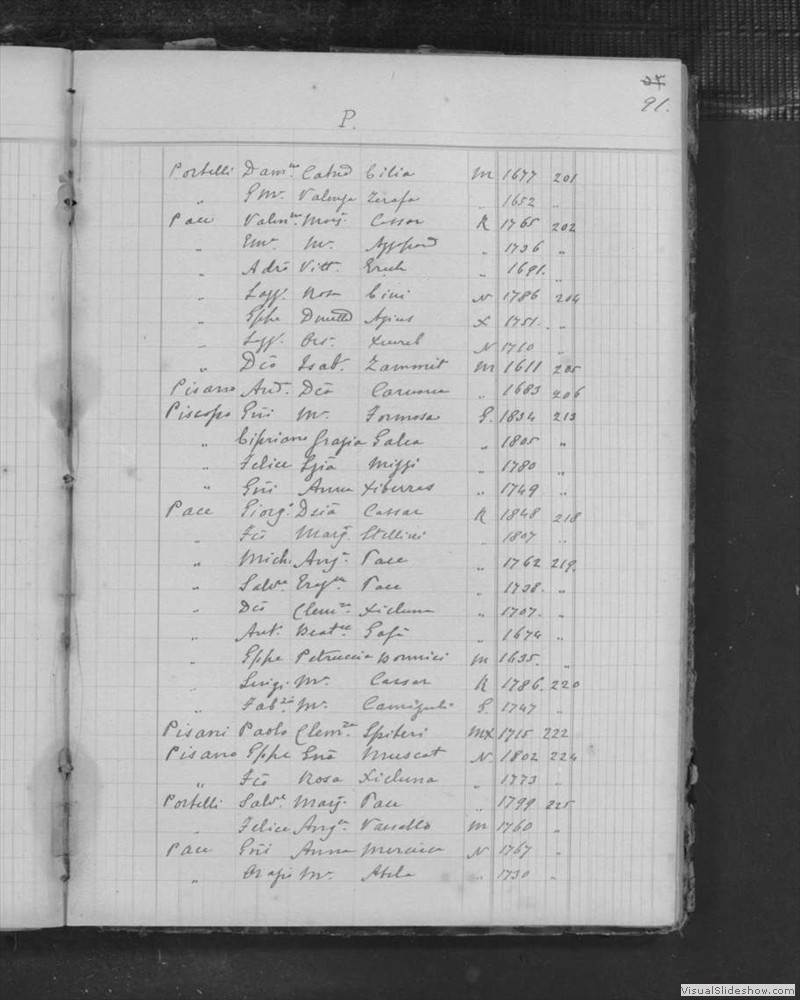 27
91.
P.
Portelli Dam.co Catnd Cilia M 1677 201
" Gmo. Valenza Zerafa " 1652 "
Pace Valen.no Marj. Cassar R 1765 202
" Em.o M.a " 1736 "
" Adrõ Vitt. Erich " 1691. "
" Rosa Cini N 1786 204
" Gppe Agius X 1751. "
" Xuereb N 1710 "
" Dcõ Isab.a Zammit M 1611 205
Pisano And. Dcã Caruana " 1683 206
Piscopo Gnñi M.a Formosa G. 1834 213
" Cipriano Grazia Galea " 1805 "
" Felice Mizzi " 1780 "
" Gnñi Anna Xiberras " 1749 "
Pace Giorg.o Cassar R 1848 218
" Fcõ Marg. Stellini " 1807 "
" Mich. Ang.a Pace " 1762 219.
" Salv.re Pace " 1738. "
" Dcõ Clem.za Xicluna " 1707. "
" Ant.o Beat.ce Gafà " 1674 "
" Gppe Petruccia Bonnici M 1635. "
" Luigi M.a Cassar R 1786. 220
" Fab.zio M.a G. 1747 "
Pisani Paolo Clem.za Spiteri MX 1715 222
Pisano Gppe Gnã Muscat N 1802 224
" Fcõ Rosa Xicluna " 1773 "
Portelli Salv.e Marj. Pace " 1799 225
" Felice Ang.ca Vassallo M 1760 "
Pace Gnñi Anna Mercieca N 1767 "
" M.a Abela " 1730 "
VisualSlideshow.com